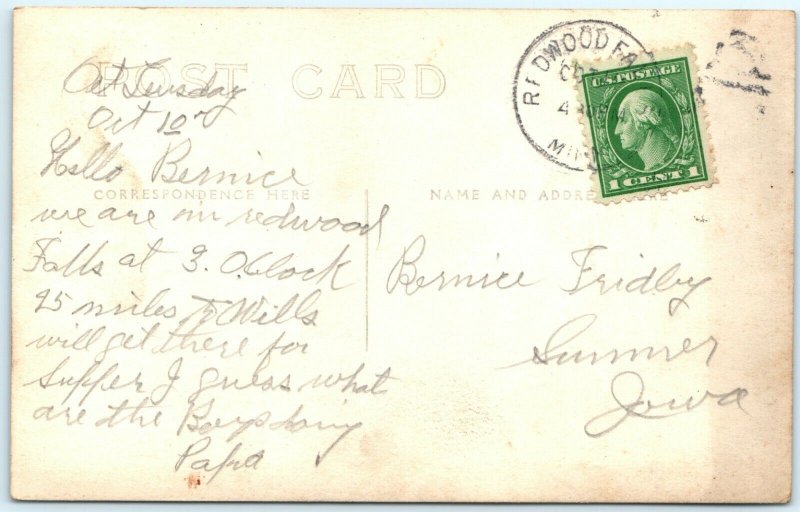 POST CARD
Oct Tuesday
Oct 10
Hello Bernice
CORRESPONDENCE HERE
we are in redwood
Falls at 3. O.Clock
miles to Wills
will get there for
Supper I guess what
are the Boys doing
Papa
REDWOOD FA
MINN
U.S. POSTAGE
1 CENT 1
NAME AND ADDRE HERE
Bernice Fridley
Sumner
Iowa